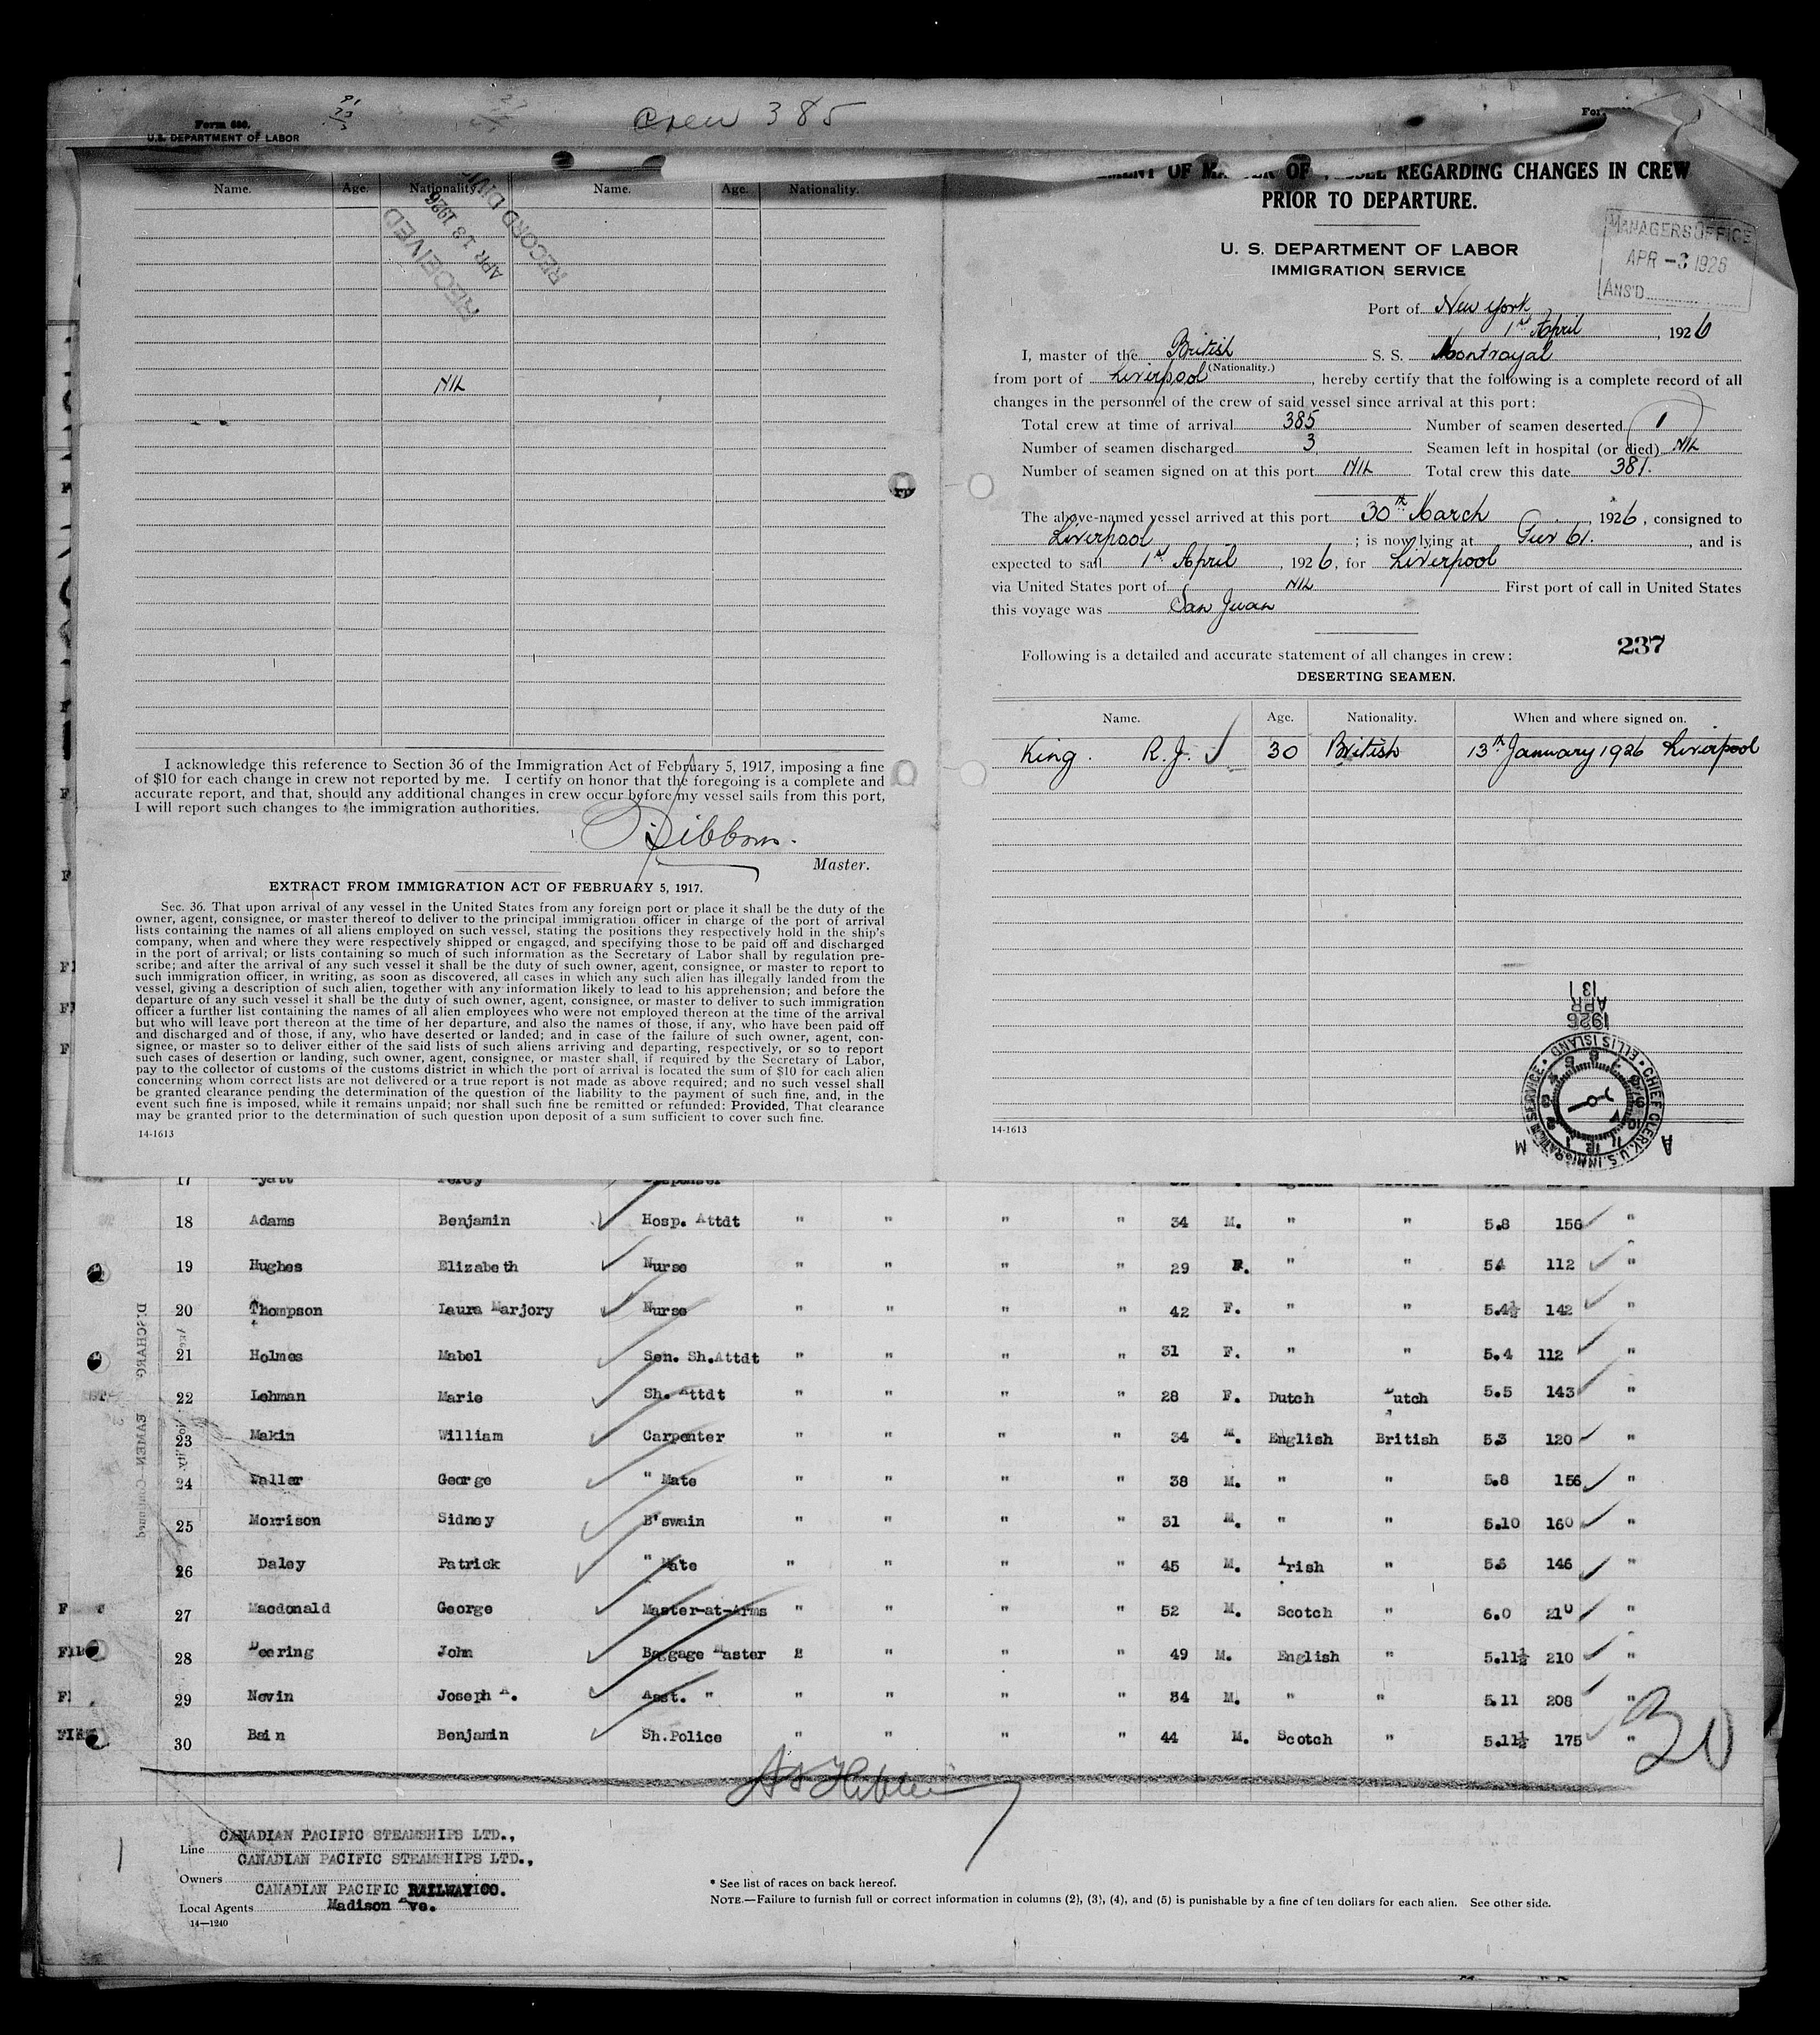 Crew 385
Form 680.
U.S. DEPARTMENT OF LABOR
Name. Age. Nationality. Name. Age. Nationality.
RECEIVED
APR 13 1926
RECORD
Nil
I acknowledge this reference to Section 36 of the Immigration Act of February 5, 1917, imposing a fine
of $10 for each change in crew not reported by me. I certify on honor that the foregoing is a complete and
accurate report, and that, should any additional changes in crew occur before my vessel sails from this port,
I will report such changes to the immigration authorities.
Master.
EXTRACT FROM IMMIGRATION ACT OF FEBRUARY 5, 1917.
Sec. 36. That upon arrival of any vessel in the United States from any foreign port or place it shall be the duty of the
owner, agent, consignee, or master thereof to deliver to the principal immigration officer in charge of the port of arrival
lists containing the names of all aliens employed on such vessel, stating the positions they respectively hold in the ship's
company, when and where they were respectively shipped or engaged, and specifying those to be paid off and discharged
in the port of arrival; or lists containing so much of such information as the Secretary of Labor shall by regulation pre-
scribe; and after the arrival of any such vessel it shall be the duty of such owner, agent, consignee, or master to report to
such immigration officer, in writing, as soon as discovered, all cases in which any such alien has illegally landed from the
vessel, giving a description of such alien, together with any information likely to lead to his apprehension; and before the
departure of any such vessel it shall be the duty of such owner, agent, consignee, or master to deliver to such immigration
officer a further list containing the names of all alien employees who were not employed thereon at the time of the arrival
but who will leave port thereon at the time of her departure, and also the names of those, if any, who have been paid off
and discharged and of those, if any, who have deserted or landed; and in case of the failure of such owner, agent, con-
signee, or master so to deliver either of the said lists of such aliens arriving and departing, respectively, or so to report
such cases of desertion or landing, such owner, agent, consignee, or master shall, if required by the Secretary of Labor,
pay to the collector of customs of the customs district in which the port of arrival is located the sum of $10 for each alien
concerning whom correct lists are not delivered or a true report is not made as above required; and no such vessel shall
be granted clearance pending the determination of the question of the liability to the payment of such fine, and, in the
event such fine is imposed, while it remains unpaid; nor shall such fine be remitted or refunded: Provided, That clearance
may be granted prior to the determination of such question upon deposit of a sum sufficient to cover such fine.
14-1613
OF REGARDING CHANGES IN CREW
PRIOR TO DEPARTURE.
U. S. DEPARTMENT OF LABOR
IMMIGRATION SERVICE
MANAGERS OFFICE
APR -3 1926
ANS'D
Port of New York
1st April, 1926
I, master of the British S. S. Montroyal
(Nationality.)
from port of Liverpool, hereby certify that the following is a complete record of all
changes in the personnel of the crew of said vessel since arrival at this port:
Total crew at time of arrival 385 Number of seamen deserted 1
Number of seamen discharged 3 Seamen left in hospital (or died) Nil
Number of seamen signed on at this port Nil Total crew this date 381.
The above-named vessel arrived at this port 30th March, 1926, consigned to
Liverpool; is now lying at Pier 61., and is
expected to sail 1st April, 1926, for Liverpool
via United States port of Nil First port of call in United States
this voyage was San Juan
237
Following is a detailed and accurate statement of all changes in crew:
DESERTING SEAMEN.
Name. Age. Nationality. When and where signed on.
King. R. J. 30 British 13th January 1926 Liverpool
1926
APR
13
CHIEF CLERK, U.S. IMMIGRATION SERVICE • ELLIS ISLAND •
A M
14-1613
17
18 Adams Benjamin Hosp. Attdt " " " " 34 M. " " 5.8 156 "
19 Hughes Elizabeth Nurse " " " " 29 F. " " 54 112 "
20 Thompson Laura Marjory Nurse " " " " 42 F. " " 5.4½ 142 "
21 Holmes Mabel Sen. Sh.Attdt " " " " 31 F. " " 5.4 112 "
22 Lehman Marie Sh. Attdt " " " " 28 F. Dutch Dutch 5.5 143 "
23 Makin William Carpenter " " " " 34 M. English British 5.3 120 "
24 Waller George " Mate " " " " 38 M. " " 5.8 156 "
25 Morrison Sidney B'swain " " " " 31 M. " " 5.10 160 "
26 Daley Patrick " Mate " " " " 45 M. Irish " 5.6 146 "
27 Macdonald George Master-at-Arms " " " " 52 M. Scotch " 6.0 210 "
28 Deering John Baggage Master " " " " 49 M. English " 5.11½ 210 "
29 Nevin Joseph A. Asst. " " " " " 34 M. " " 5.11 208 "
30 Bain Benjamin Sh.Police " " " " 44 M. Scotch " 5.11½ 175 "
30
Line CANADIAN PACIFIC STEAMSHIPS LTD.,
Owners CANADIAN PACIFIC STEAMSHIPS LTD.,
Local Agents CANADIAN PACIFIC RAILWAY CO.
Madison Ave.
14—1240
* See list of races on back hereof.
NOTE.—Failure to furnish full or correct information in columns (2), (3), (4), and (5) is punishable by a fine of ten dollars for each alien. See other side.